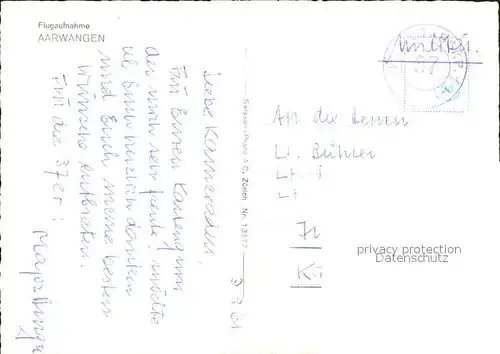 Flugaufnahme
AARWANGEN
Liebe Kameraden,
Für Euren Kartengruss
der mich sehr freute, möchte
ich Euch herzlich danken
und Euch meine besten
Wünsche entbieten.
Für die 37er:
Major
Swissair-Photo A.G., Zürich Nr. 13677
An die Herren
Lt. Bühler
Lt.
Lt.
privacy protection
www.ansichtskartenversand.com